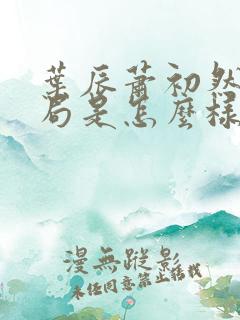 葉辰蕭初然
局是怎麼樣
漫無蹤影
未經同意禁止轉載